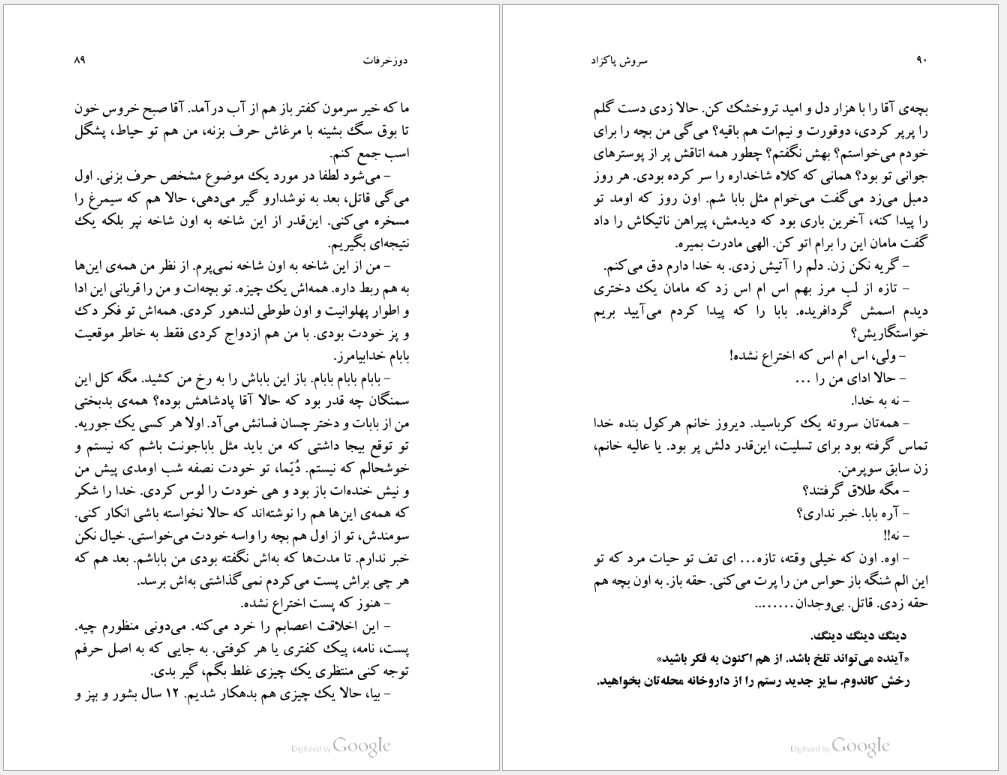 دوزخرفات ۸۹
ما که خیر سرمون کفتر باز هم از آب درآمد. آقا صبح خروس خون
تا بوق سگ بشینه با مرغاش حرف بزنه، من هم تو حیاط، پشگل
اسب جمع کنم.
- می‌شود لطفا در مورد یک موضوع مشخص حرف بزنی. اول
می‌گی قاتل، بعد به نوشدارو گیر می‌دهی، حالا هم که سیمرغ را
مسخره می‌کنی. این‌قدر از این شاخه به اون شاخه نپر بلکه یک
نتیجه‌ای بگیریم.
- من از این شاخه به اون شاخه نمی‌پرم. از نظر من همه‌ی این‌ها
به هم ربط داره. همه‌اش یک چیزه. تو بچه‌ات و من را قربانی این ادا
و اطوار پهلوانیت و اون طوطی لندهور کردی. همه‌اش تو فکر دک
و پز خودت بودی. با من هم ازدواج کردی فقط به خاطر موقعیت
بابام خدابیامرز.
- بابام بابام بابام. باز این باباش را به رخ من کشید. مگه کل این
سمنگان چه قدر بود که حالا آقا پادشاهش بوده؟ همه‌ی بدبختی
من از بابات و دختر چسان فسانش می‌آد. اولا هر کسی یک جوریه.
تو توقع بیجا داشتی که من باید مثل باباجونت باشم که نیستم و
خوشحالم که نیستم. دُیَما، تو خودت نصفه شب اومدی پیش من
و نیش خنده‌ات باز بود و هی خودت را لوس کردی. خدا را شکر
که همه‌ی این‌ها هم را نوشته‌اند که حالا نخواسته باشی انکار کنی.
سومندش، تو از اول هم بچه را واسه خودت می‌خواستی. خیال نکن
خبر ندارم. تا مدت‌ها که به‌اش نگفته بودی من باباشم. بعد هم که
هر چی براش پست می‌کردم نمی‌گذاشتی به‌اش برسد.
- هنوز که پست اختراع نشده.
- این اخلاقت اعصابم را خرد می‌کنه. می‌دونی منظورم چیه.
پست، نامه، پیک کفتری یا هر کوفتی. به جایی که به اصل حرفم
توجه کنی منتظری یک چیزی غلط بگم، گیر بدی.
- بیا، حالا یک چیزی هم بدهکار شدیم. ۱۲ سال بشور و بپز و
Digitized by Google
۹۰ سروش پاکزاد
بچه‌ی آقا را با هزار دل و امید تروخشک کن. حالا زدی دست گلم
را پرپر کردی، دوقورت و نیم‌ات هم باقیه؟ می‌گی من بچه را برای
خودم می‌خواستم؟ بهش نگفتم؟ چطور همه اتاقش پر از پوسترهای
جوانی تو بود؟ همانی که کلاه شاخداره را سر کرده بودی. هر روز
دمبل می‌زد می‌گفت می‌خوام مثل بابا شم. اون روز که اومد تو
را پیدا کنه، آخرین باری بود که دیدمش، پیراهن ناتیکاش را داد
گفت مامان این را برام اتو کن. الهی مادرت بمیره.
- گریه نکن زن. دلم را آتیش زدی. به خدا دارم دق می‌کنم.
- تازه از لب مرز بهم اس ام اس زد که مامان یک دختری
دیدم اسمش گردآفریده. بابا را که پیدا کردم می‌آیید بریم
خواستگاریش؟
- ولی، اس ام اس که اختراع نشده!
- حالا ادای من را ...
- نه به خدا.
- همه‌تان سروته یک کرباسید. دیروز خانم هرکول بنده خدا
تماس گرفته بود برای تسلیت، این‌قدر دلش پر بود. یا عالیه خانم،
زن سابق سوپرمن.
- مگه طلاق گرفتند؟
- آره بابا. خبر نداری؟
- نه!!
- اوه. اون که خیلی وقته، تازه... ای تف تو حیات مرد که تو
این الم شنگه باز حواس من را پرت می‌کنی. حقه باز. به اون بچه هم
حقه زدی. قاتل. بی‌وجدان........
دینگ دینگ دینگ.
«آینده می‌تواند تلخ باشد. از هم اکنون به فکر باشید»
رخش کاندوم. سایز جدید رستم را از داروخانه محله‌تان بخواهید.
Digitized by Google